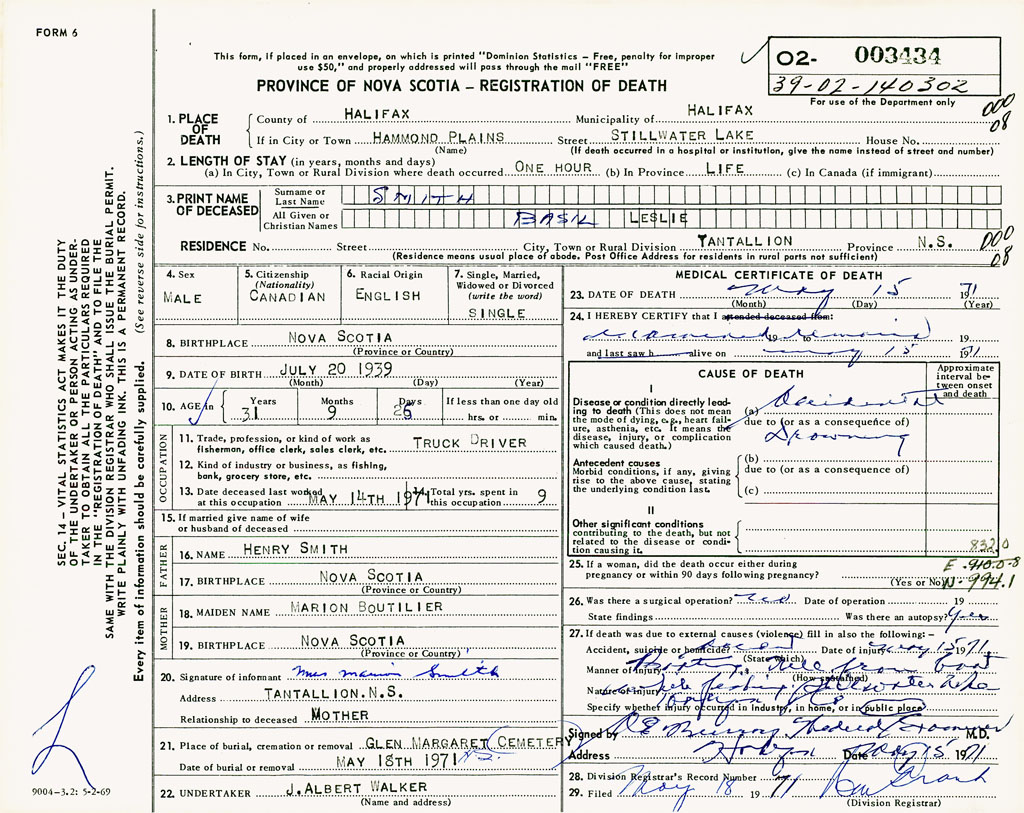 FORM 6
This form, if placed in an envelope, on which is printed "Dominion Statistics – Free, penalty for improper
use $50," and properly addressed will pass through the mail "FREE"
PROVINCE OF NOVA SCOTIA – REGISTRATION OF DEATH
02- 003434
39-02-140302
For use of the Department only
000
08
1. PLACE OF DEATH
County of HALIFAX Municipality of HALIFAX
If in City or Town HAMMOND PLAINS Street STILLWATER LAKE House No.
(Name) (If death occurred in a hospital or institution, give the name instead of street and number)
2. LENGTH OF STAY (in years, months and days)
(a) In City, Town or Rural Division where death occurred ONE HOUR (b) In Province LIFE (c) In Canada (if immigrant)
3. PRINT NAME OF DECEASED
Surname or Last Name SMITH
All Given or Christian Names BASIL LESLIE
RESIDENCE No. Street City, Town or Rural Division TANTALLION Province N.S.
(Residence means usual place of abode. Post Office Address for residents in rural parts not sufficient)
000
08
4. Sex
MALE
5. Citizenship
(Nationality)
CANADIAN
6. Racial Origin
ENGLISH
7. Single, Married,
Widowed or Divorced
(write the word)
SINGLE
8. BIRTHPLACE NOVA SCOTIA
(Province or Country)
9. DATE OF BIRTH JULY 20 1939
(Month) (Day) (Year)
10. AGE in Years Months Days If less than one day old
31 9 26 hrs. or min.
OCCUPATION
11. Trade, profession, or kind of work as
fisherman, office clerk, sales clerk, etc. TRUCK DRIVER
12. Kind of industry or business, as fishing,
bank, grocery store, etc.
13. Date deceased last worked
at this occupation MAY 14TH 1971 Total yrs. spent in
this occupation 9
15. If married give name of wife
or husband of deceased
FATHER
16. NAME HENRY SMITH
17. BIRTHPLACE NOVA SCOTIA
(Province or Country)
MOTHER
18. MAIDEN NAME MARION BOUTILIER
19. BIRTHPLACE NOVA SCOTIA
(Province or Country)
20. Signature of informant Mrs Marion Smith
Address TANTALLION.N.S.
Relationship to deceased MOTHER
21. Place of burial, cremation or removal GLEN MARGARET CEMETERY N.S.
Date of burial or removal MAY 18TH 1971
22. UNDERTAKER J.ALBERT WALKER
(Name and address)
MEDICAL CERTIFICATE OF DEATH
23. DATE OF DEATH May 15 1971
(Month) (Day) (Year)
24. I HEREBY CERTIFY that I attended deceased from:
examined remains 19 to 19
and last saw h alive on May 15 1971
CAUSE OF DEATH
Approximate
interval be-
tween onset
and death
I
Disease or condition directly lead-
ing to death (This does not mean
the mode of dying, e.g., heart fail-
ure, asthenia, etc. It means the
disease, injury, or complication
which caused death.)
(a) Accidental
due to (or as a consequence of)
Drowning
Antecedent causes
Morbid conditions, if any, giving
rise to the above cause, stating
the underlying condition last.
(b)
due to (or as a consequence of)
(c)
II
Other significant conditions
contributing to the death, but not
related to the disease or condi-
tion causing it.
832.0
E. 910.0-8
N-994.1
25. If a woman, did the death occur either during
pregnancy or within 90 days following pregnancy?
(Yes or No)
26. Was there a surgical operation? Date of operation 19
State findings Was there an autopsy? Yes
27. If death was due to external causes (violence) fill in also the following: –
Accident, suicide or homicide? Date of injury May 15 1971
(State which)
Manner of injury Boating fell from boat
(How sustained)
Nature of injury
Specify whether injury occurred in industry, in home, or in public place
Signed by Medical Examiner M.D.
Address Date May 15 1971
28. Division Registrar's Record Number
29. Filed May 18 1971
(Division Registrar)
SEC. 14 – VITAL STATISTICS ACT MAKES IT THE DUTY
OF THE UNDERTAKER OR PERSON ACTING AS UNDER-
TAKER TO OBTAIN ALL THE PARTICULARS REQUIRED
IN THE "REGISTRATION OF DEATH" AND TO FILE THE
SAME WITH THE DIVISION REGISTRAR WHO SHALL ISSUE THE BURIAL PERMIT.
WRITE PLAINLY WITH UNFADING INK. THIS IS A PERMANENT RECORD.
Every item of information should be carefully supplied. (See reverse side for instructions.)
9004-3.2: 5-2-69